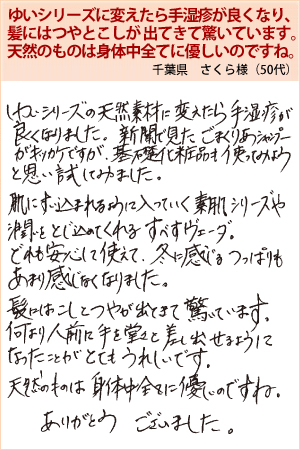 ゆいシリーズに変えたら手湿疹が良くなり、
髪にはつやとこしが出てきて驚いています。
天然のものは身体中全てに優しいのですね。
千葉県　さくら様（50代）
ゆいシリーズの天然素材に変えたら手湿疹が
良くなりました。新聞で見たごまくりあシャンプー
がキッカケですが、基礎化粧品も使ってみよう
と思い試してみました。
肌にすい込まれるように入っていく素肌シリーズや
潤いをとじ込めてくれるすべすべヴェーダ。
どれも安心して使えて、冬に感じるつっぱりも
あまり感じなくなりました。
髪にはこしとつやが出てきて驚いています。
何より人前に手を堂々と差し出せるように
なったことがとてもうれしいです。
天然のものは身体中全てに優しいのですね。
ありがとうございました。